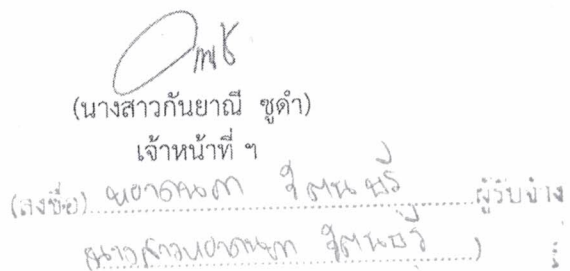 (นางสาวกันยาณี ชูดำ)
เจ้าหน้าที่ ฯ
(ลงชื่อ) หยาดนภา จิตนบรี ผู้รับจ้าง
(นางสาวหยาดนภา )